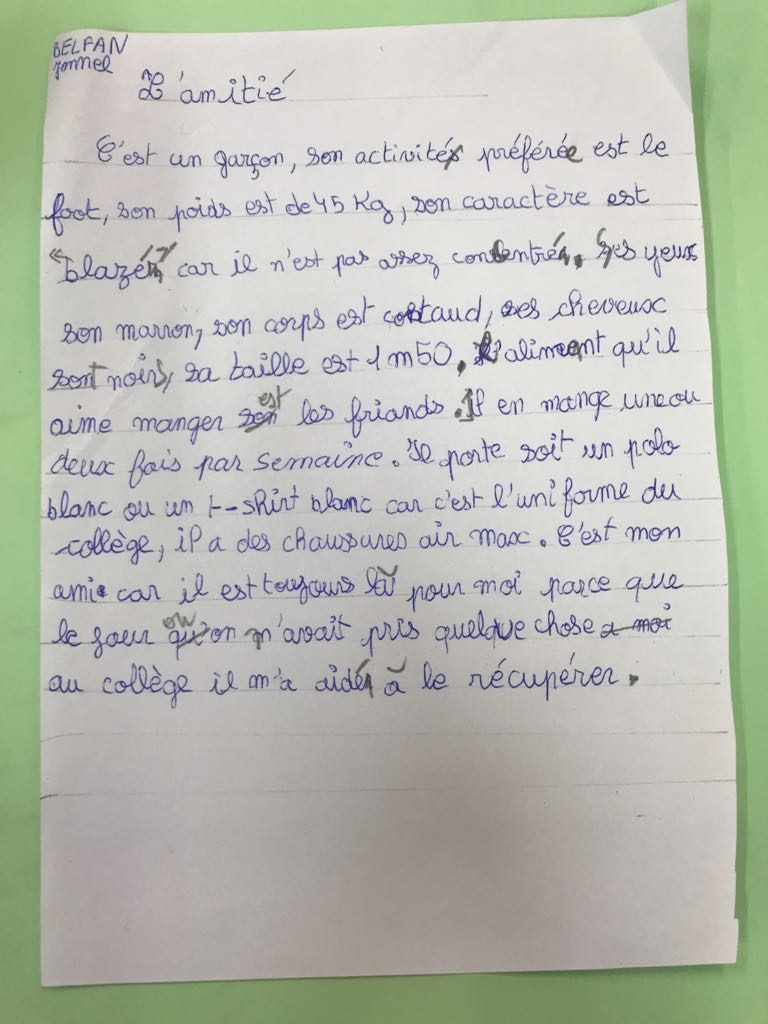 BELFAN
Jonnel
L'amitié
C'est un garçon, son activité préférée est le
foot, son poids est de 45 Kg, son caractère est
"blazé" car il n'est pas assez concentré. Ses yeux
son marron, son corps est costaud, ses cheveux
sont noirs, sa taille est 1m50. L'aliment qu'il
aime manger est les friands. Il en mange une ou
deux fois par semaine. Il porte soit un polo
blanc ou un t-shirt blanc car c'est l'uniforme du
collège, il a des chaussures air max. C'est mon
ami car il est toujours là pour moi parce que
le jour où on m'avait pris quelque chose
au collège il m'a aidé à le récupérer.